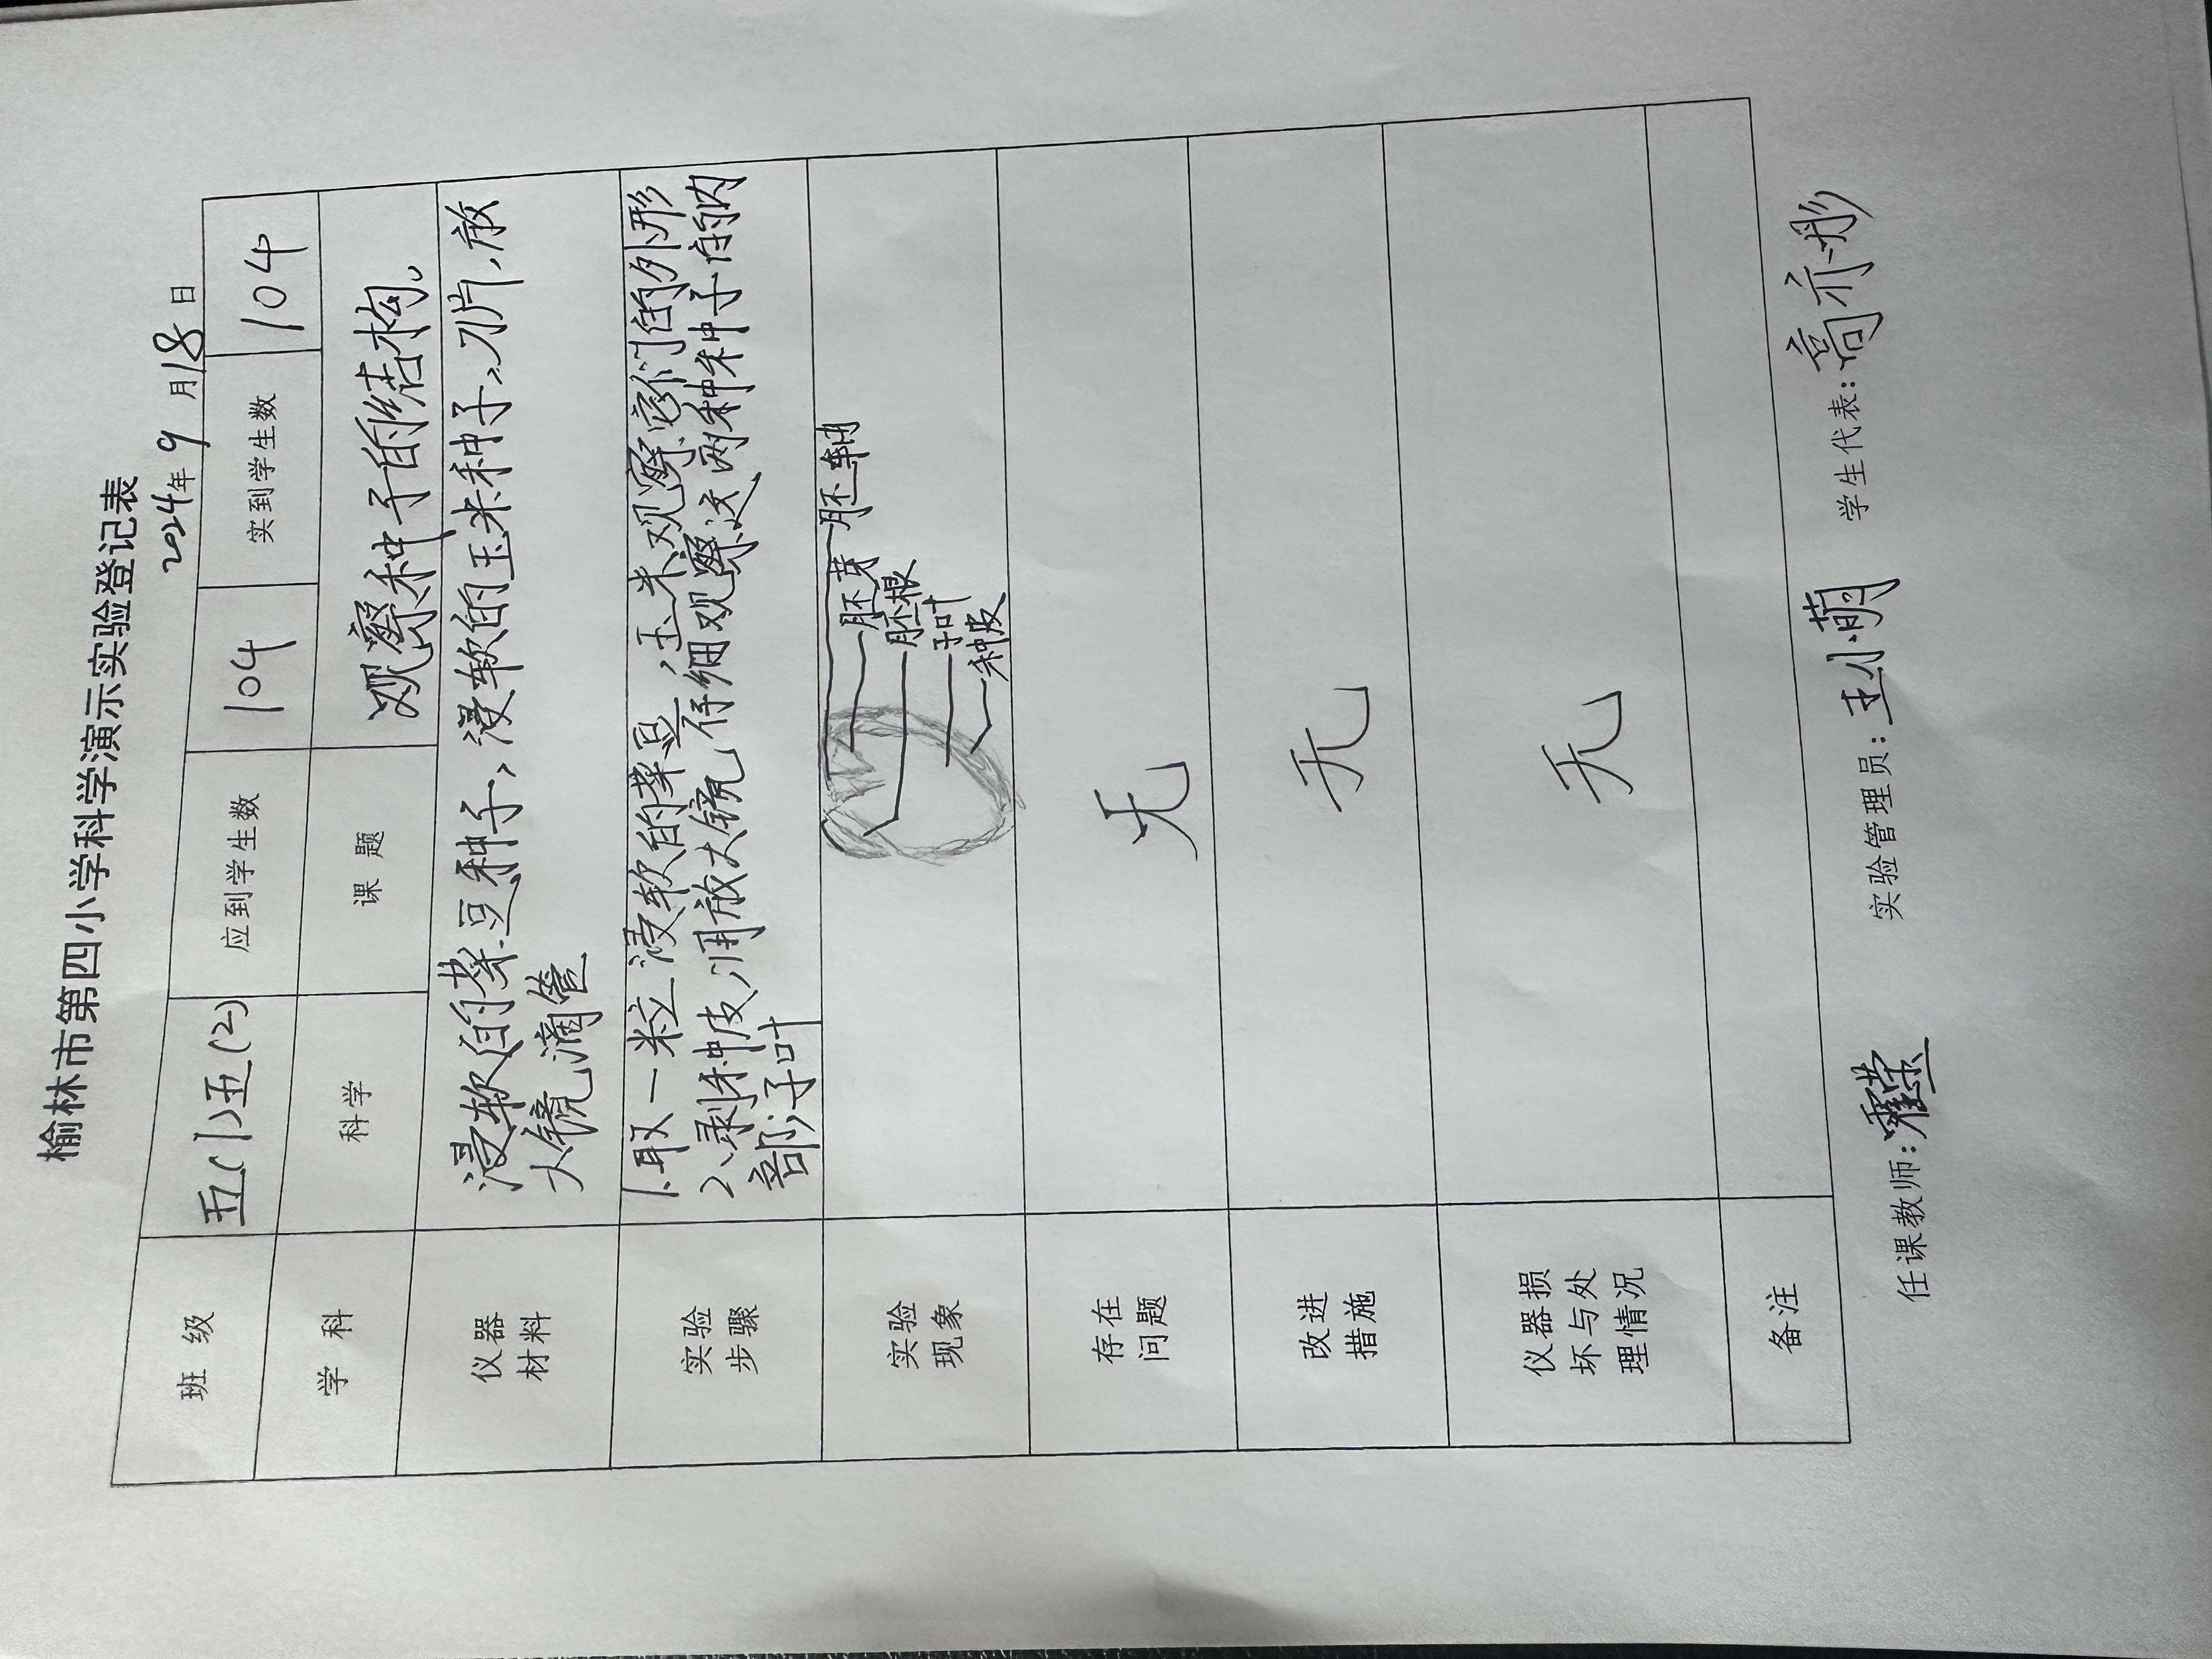 榆林市第四小学科学演示实验登记表
2024年9月18日
班 级 五(1)五(2) 应到学生数 104 实到学生数 104
学 科 科学 课 题 观察种子的结构。
仪器材料 浸软的菜豆种子、浸软的玉米种子、刀片、放
大镜 滴管
实验步骤 1.取一粒浸软的菜豆、玉米观察它们的外形
2、剥种皮、用放大镜仔细观察这两种种子的内
部:子叶
实验现象
胚轴
胚芽
胚根
子叶
种皮
存在问题 无
改进措施 无
仪器损坏与处理情况 无
备注
任课教师: 实验管理员:王小萌 学生代表:高亦彤